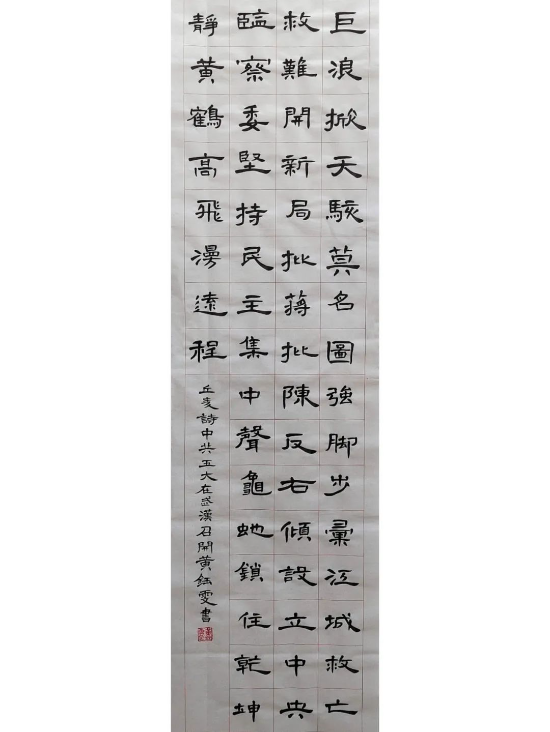 巨浪掀天駭莫名圖強脚步彙江城救亡
救難開新局批蔣批陳反右傾設立中央
監察委堅持民主集中聲龜虵鎖住乾坤
靜黃鶴高飛漫遠程
丘麦詩中共五大在武漢召開黃鈺雯書